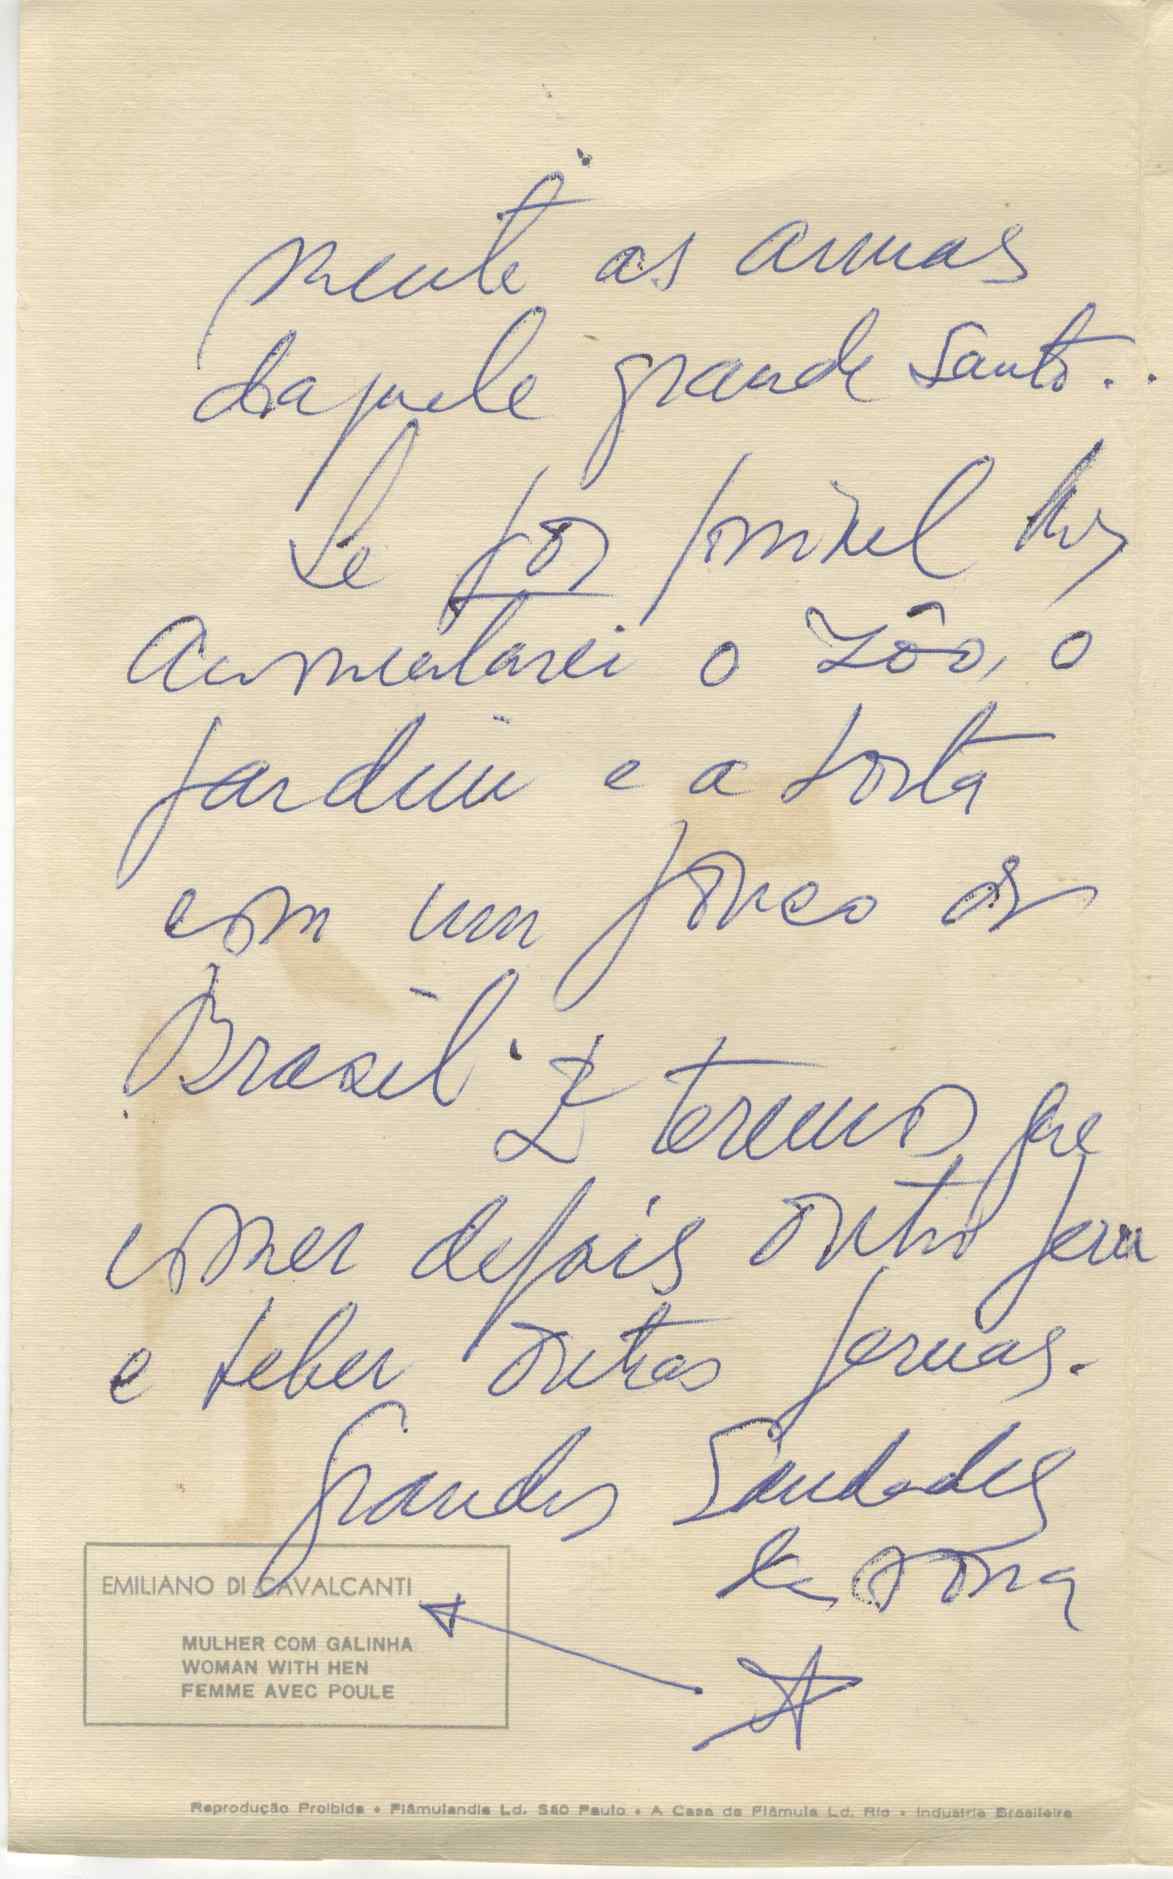 mente as armas
daquele grande Santo..
Se for possivel lhes
aumentarei o Zôo, o
jardim e a horta
com um pouco do
Brasil. E teremos que
comer depois outro peru
e beber outras
Grandes Saudades
da
EMILIANO DI CAVALCANTI
MULHER COM GALINHA
WOMAN WITH HEN
FEMME AVEC POULE
Reprodução Proibida • Flâmulandia Ld. São Paulo • A Casa da Flâmula Ld. Rio • Industria Brasileira